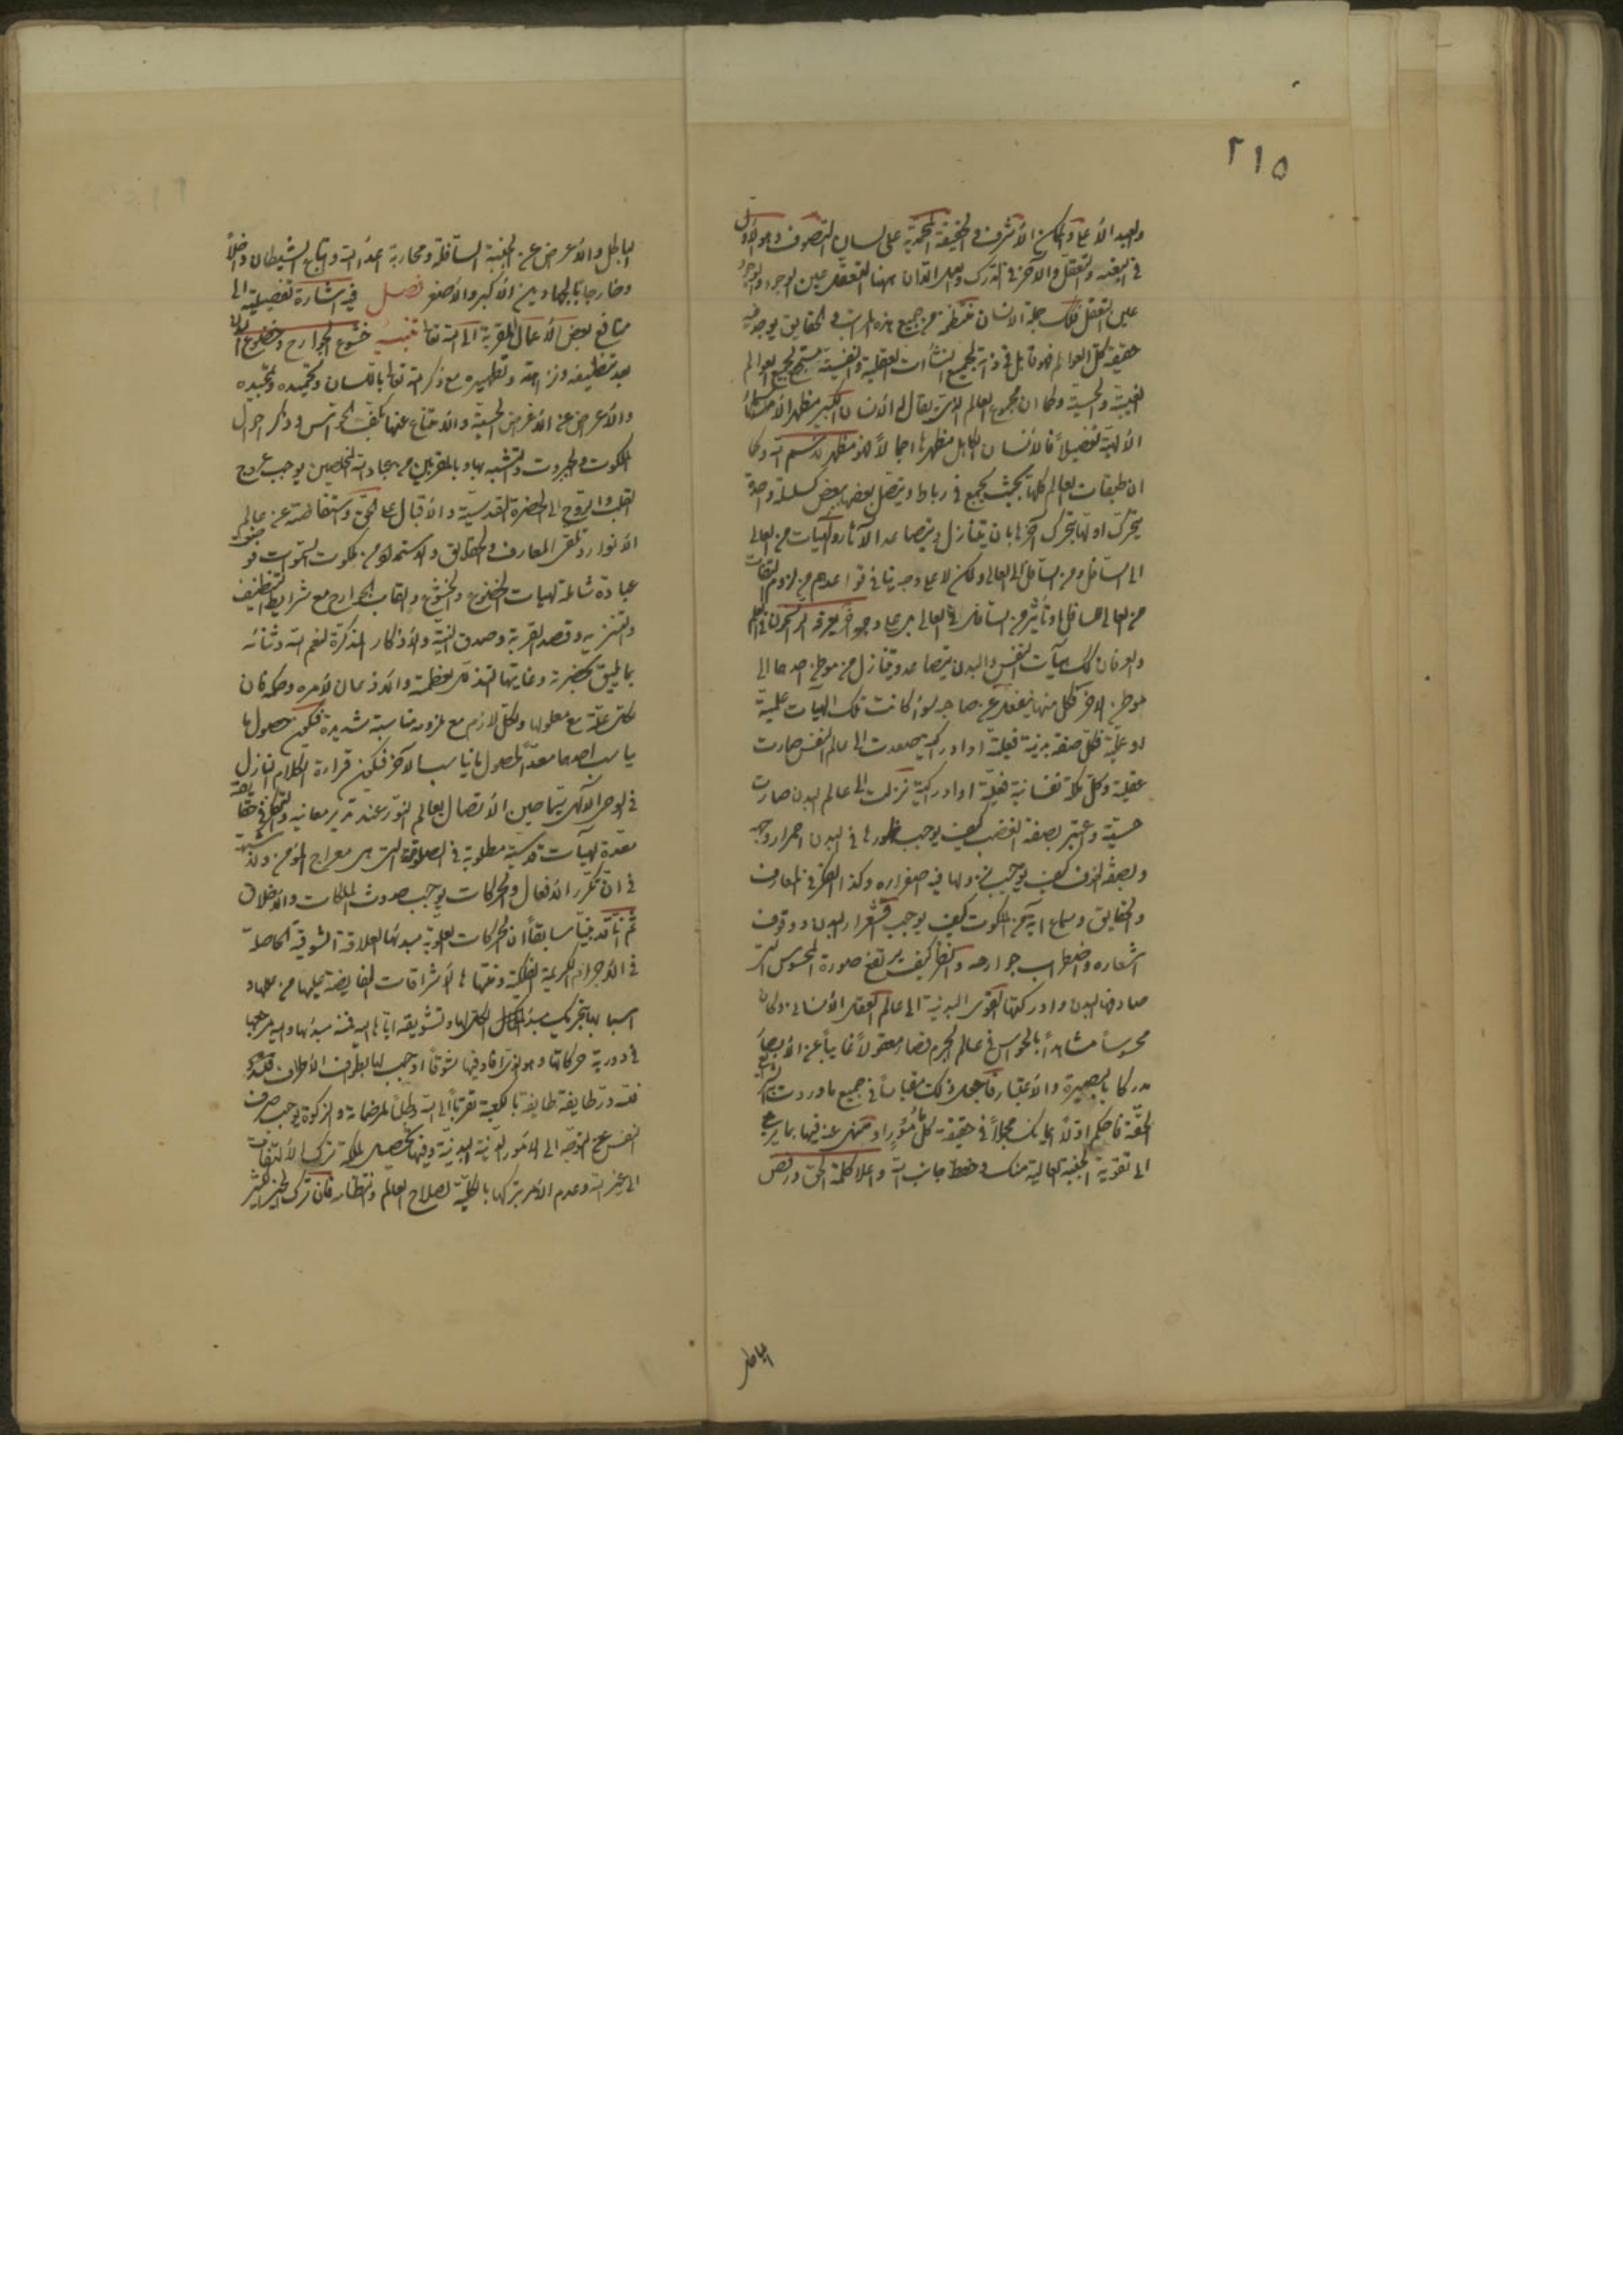 ٢١٥
والعبد الأعلى والممكن الأشرف والحقيقة المحمدية على لسان التصوف وهو الأول
في البغية والتعقل والآخر في الدرك والعمل اذ كان ههنا التعقل عين الوجود والوجود
عين التعقل فلك جملة الانسان منتظمة من جميع هذه المراتب والحقايق يوجد فيه
حقيقة كل العوالم فهو قابل في ذاته لجميع النشآت العقلية والنفسية مستجمع لجميع العوالم
الغيبية والحسية وكما ان مجموع العالم الذي يقال له الانسان الكبير مظهر الأسماء
الالهية تفصيلاً فالانسان الكامل مظهرها اجمالاً فهو مظهر لاسم الله وكما
ان طبقات العالم كلها بحيث يجمع في رباط ويتصل بعضها ببعض كسلسلة واحدة
يتحرك اولها بتحرك آخرها بان يتنازل ويتصاعد الآثار والهيآت من العالي
الى السافل ومن السافل الى العالي ولكن لا على وجه ينافي قواعدهم من لزوم التفات
من العالي للسافل او تأثير من السافل في العالي بل على وجه آخر يعرفه الراسخون في العلم
والعرفان كذلك هيآت النفس والبدن يتصاعد ويتنازل من موطن احدهما الى
موطن الاخر فكل منهما ينفعل عن صاحبه سواء كانت تلك الهيآت علمية
او عملية فكل صفة بدنية فعلية او ادراكية صعدت الى عالم النفس صارت
عقلية وكل ملكة نفسانية فعلية او ادراكية نزلت الى عالم البدن صارت
حسية واعتبر بصفة الغضب كيف يوجب ظهورها في البدن احمرار وجهه
وبصفة الخوف كيف يوجب نزولها فيه اصفراره وكذا الفكر في المعارف
والحقايق وسماع آية من الملكوت كيف يوجب اقشعرار البدن ووقوف
اشعاره واضطراب جوارحه وانظر كيف يرتفع صورة المحسوس التي
صادفها البدن وادركتها القوى البدنية الى عالم العقل الانساني وكان
محسوساً مشاهداً بالحواس في عالم الجرم فصار معقولاً غايباً عن الابصار
مدركا بالبصيرة والاعتبار فاجعل ذلك مقياساً في جميع ما وردت به الشرايع
الحقة فاحكم اولاً ايمانك مجملاً في حقيقة كل مأمور او منهي عنه فيها بما يرجع
الى تقوية الجنبة العالية منك وحفظ جانب الله واعلاء كلمة الحق ورفض
الباطل
الباطل والاعراض عن الجنبة السافلة ومحاربة اعداء الله واتباع الشيطان داخلاً
وخارجاً بالجهادين الاكبر والاصغر فصل فيه اشارة تفصيلية الى
منافع بعض الاعمال المقربة الى الله تعالى تنبيه خشوع الجوارح وخضوع البدن
بعد تنظيفه ونزاهته وتطهيره مع ذكر الله تعالى باللسان وتحميده وتمجيده
والاعراض عن الاغراض الحسية والامتناع عنها بكف الحواس وذكر احوال
الملكوت والجبروت والتشبه بها وبالمقربين من عباد الله المخلصين يوجب عروج
القلب والروح الى الحضرة القدسية والاقبال على الحق والاستفاضة عن عالم
الانوار وتلقي المعارف والحقايق والاستمداد من ملكوت السموات فوضعت
عبادة شاملة لهيآت الخضوع والخشوع واتعاب الجوارح مع شرايط التنظيف
والتنزيه وقصد القربة وصدق النية والاذكار المذكرة لنعم الله وثنائه
بما يليق بحضرته وغايتها التذلل لعظمته والاذعان لأمره وحكمه فان
لكل علة مع معلولها ولكل لازم مع ملزومه مناسبة شديدة فيكون حصول ما
يناسب احدهما معداً لحصول ما يناسب الآخر فيكون قراءة الكلام النازل
في الوحي الآلهي سيما حين الاتصال بعالم النور عند تدبر معانيه والتفكر في حقايقه
معدة لهيآت قدسية مطلوبة في الصلوة التي هي معراج المؤمن ولا شبهة
في ان تكرر الافعال والحركات يوجب حدوث الملكات والاخلاق
ثم انا قد بينا سابقاً ان الحركات العلوية مبدئها العلاقة الشوقية الحاصلة
في الاجرام الكريمة الفلكية وغايتها الاشراقات الفايضة عليها من عللها و
اسبابها بتحريك مبدء الكل لها وتشويقه اياها اليه فمنه مبدئها واليه مرجعها
في دورية حركاتها وهو الذي افاد فيها شوقاً اوجب لها الطواف
فلله در طايفة طايفة بالكعبة تقرباً الى الله وطلباً لمرضاته والزكوة يوجب صرف
النفس عن التوجه الى الامور الدنية البدنية وفيها تحصيل ملكة ترك الالتفات
الى غير الله وعدم الامر بتركها بالكلية لصلاح العالم وانتظامه فان ترك الخير الكثير